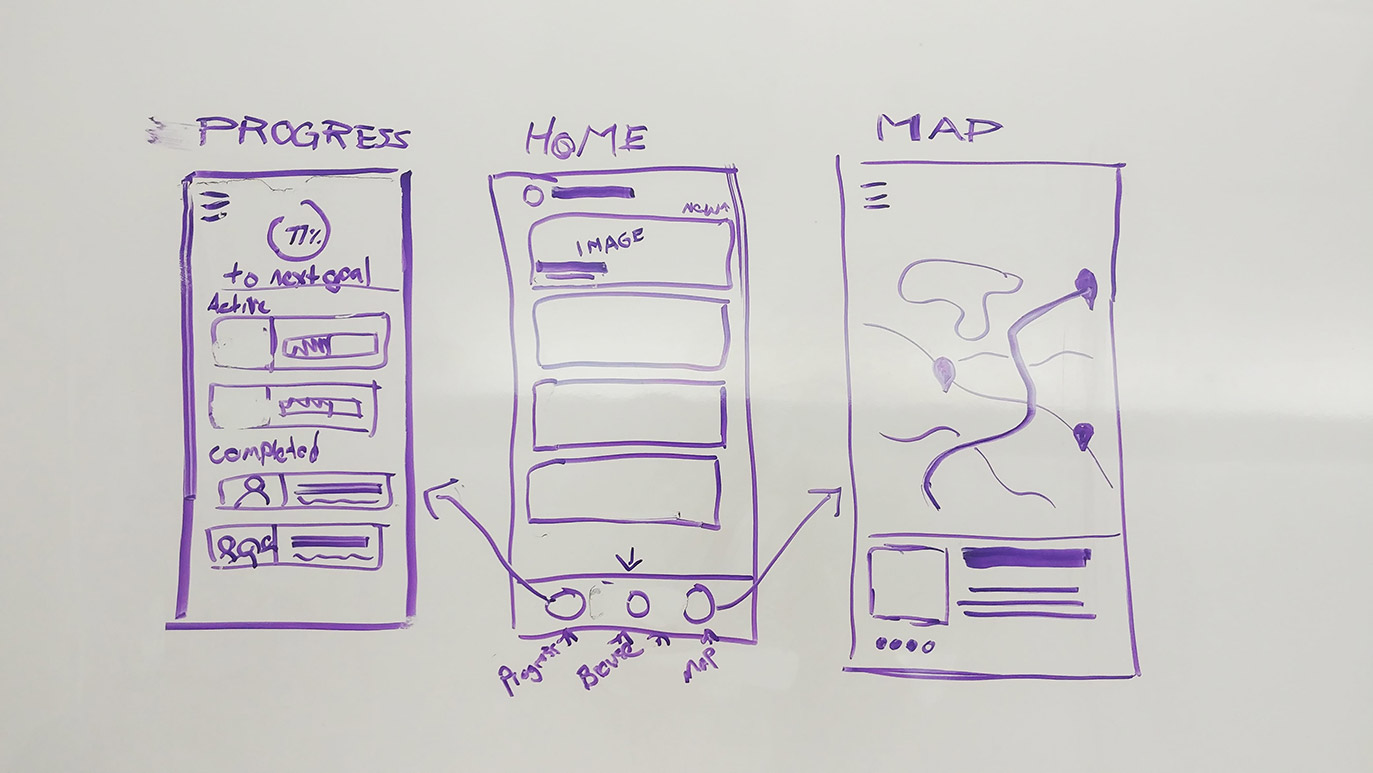 PROGRESS
77%
to next goal
Active
completed
HOME
NEW
IMAGE
Progress
Map
MAP